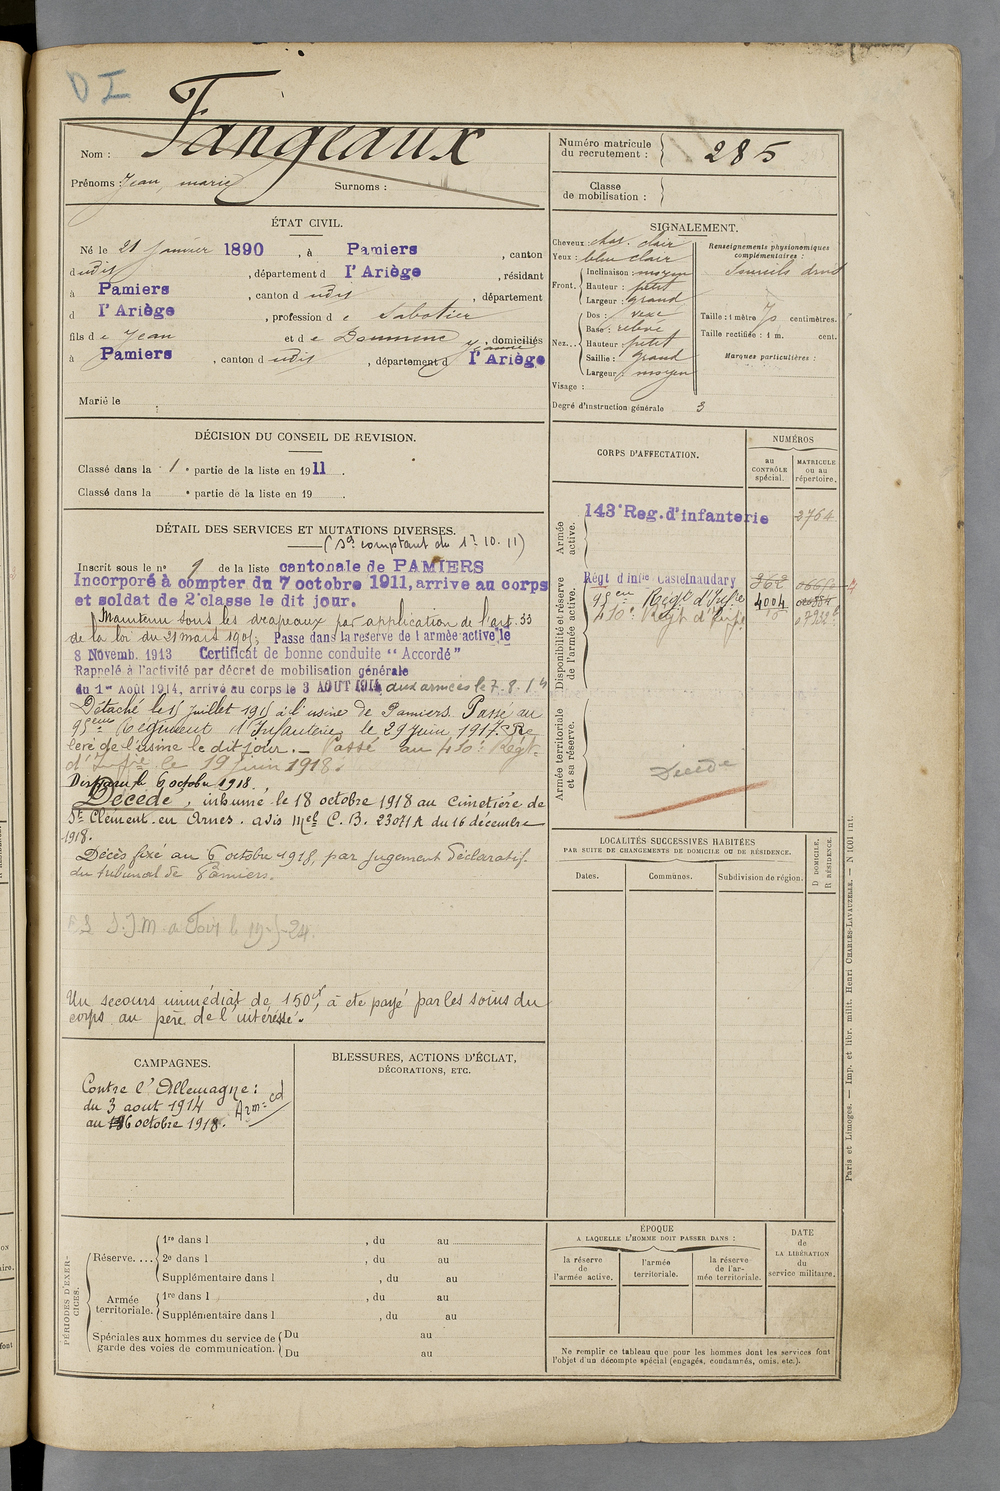 D I
Nom : Fangeaux
Prénoms : Jean marie Surnoms :
Numéro matricule du recrutement : 285
Classe de mobilisation :
ÉTAT CIVIL.
Né le 21 Janvier 1890, à Pamiers, canton
dudit, département d l'Ariège, résidant
à Pamiers, canton d udit, département
d l'Ariège, profession d e Sabotier
fils d e Jean et d e Doumenc Jeanne, domiciliés
à Pamiers, canton d udit, département d l'Ariège
Marié le
SIGNALEMENT.
Cheveux : chat. clair
Yeux : bleu clair
Front. Inclinaison : moyen
Hauteur : petit
Largeur : grand
Nez... Dos : vexe
Base : relevé
Hauteur : petit
Saillie : grand
Largeur : moyen
Visage :
Renseignements physionomiques complémentaires :
Taille : 1 mètre 70 centimètres.
Taille rectifiée : 1 m. cent.
Marques particulières :
Degré d'instruction générale 3
DÉCISION DU CONSEIL DE REVISION.
Classé dans la 1e partie de la liste en 1911.
Classé dans la e partie de la liste en 19 .
DÉTAIL DES SERVICES ET MUTATIONS DIVERSES.
(Sce comptant du 1er 10. 11)
Inscrit sous le n° 1 de la liste cantonale de PAMIERS
Incorporé à compter du 7 octobre 1911, arrivé au corps
et soldat de 2e classe le dit jour.
Maintenu sous les drapeaux par application de l'art. 33
de la loi du 21 mars 1905, Passé dans la réserve de l'armée active le
8 Novemb. 1913 Certificat de bonne conduite "Accordé"
Rappelé à l'activité par décret de mobilisation générale
du 1er Août 1914, arrivé au corps le 3 AOUT 1914 aux armées le 7. 8. 14
Détaché le 15 Juillet 1915 à l'usine de Pamiers. Passé au
95eme Régiment d'Infanterie le 29 juin 1917. Re
levé de l'usine le dit jour. - Passé au 410e Régt
d'Infie le 19 Juin 1918.
Disparu le 6 octobre 1918.
Décédé, inhumé le 18 octobre 1918 au cimetière de
St Clément en Arnes. avis mel C. B. 23071 A du 16 décembre
1918.
Décès fixé au 6 octobre 1918, par jugement déclaratif
du tribunal de Pamiers.
Un secours immédiat de 150f, à été payé par les soins du
corps au père de l'intéressé.
CORPS D'AFFECTATION.
NUMÉROS
au CONTRÔLE spécial.
MATRICULE ou au répertoire.
Armée active.
143e Reg. d'infanterie 3764
Disponibilité et réserve de l'armée active.
Régt d'Infie Castelnaudary 262
95eme Régt d'Infie 4004
410e Régt d'Infie
Armée territoriale et sa réserve.
Décédé
LOCALITÉS SUCCESSIVES HABITÉES
PAR SUITE DE CHANGEMENTS DE DOMICILE OU DE RÉSIDENCE.
Dates. Communes. Subdivision de région.
D DOMICILE, R RÉSIDENCE.
CAMPAGNES.
Contre l'Allemagne :
du 3 aout 1914
au 6 octobre 1918.
BLESSURES, ACTIONS D'ÉCLAT,
DÉCORATIONS, ETC.
PÉRIODES D'EXERCICES.
Réserve.... 1re dans l , du au
2e dans l , du au
Supplémentaire dans l , du au
Armée territoriale. 1re dans l , du au
Supplémentaire dans l , du au
Spéciales aux hommes du service de garde des voies de communication. Du au
Du au
ÉPOQUE
A LAQUELLE L'HOMME DOIT PASSER DANS :
la réserve de l'armée active.
l'armée territoriale.
la réserve de l'armée territoriale.
DATE de LA LIBÉRATION du service militaire.
Ne remplir ce tableau que pour les hommes dont les services font
l'objet d'un décompte spécial (engagés, condamnés, omis, etc.).
Paris et Limoges. — Imp. et libr. milit. Henri CHARLES-LAVAUZELLE. — N° 1001 int.